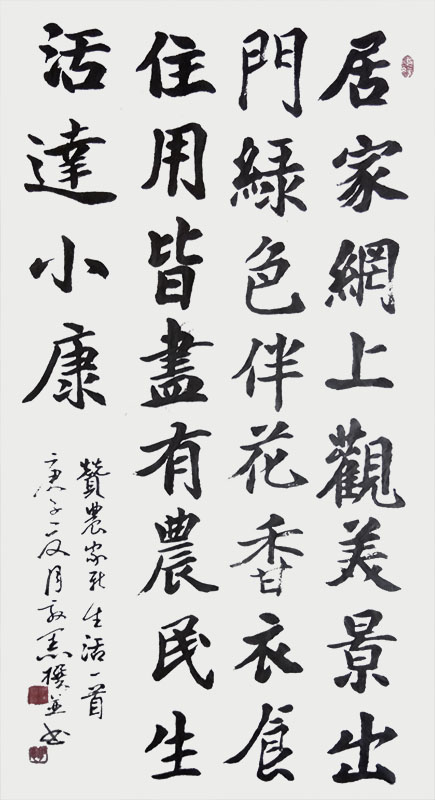 居家網上觀美景出
門綠色伴花香衣食
住用皆盡有農民生
活達小康
贊農家新生活一首
庚子夏月
撰並書